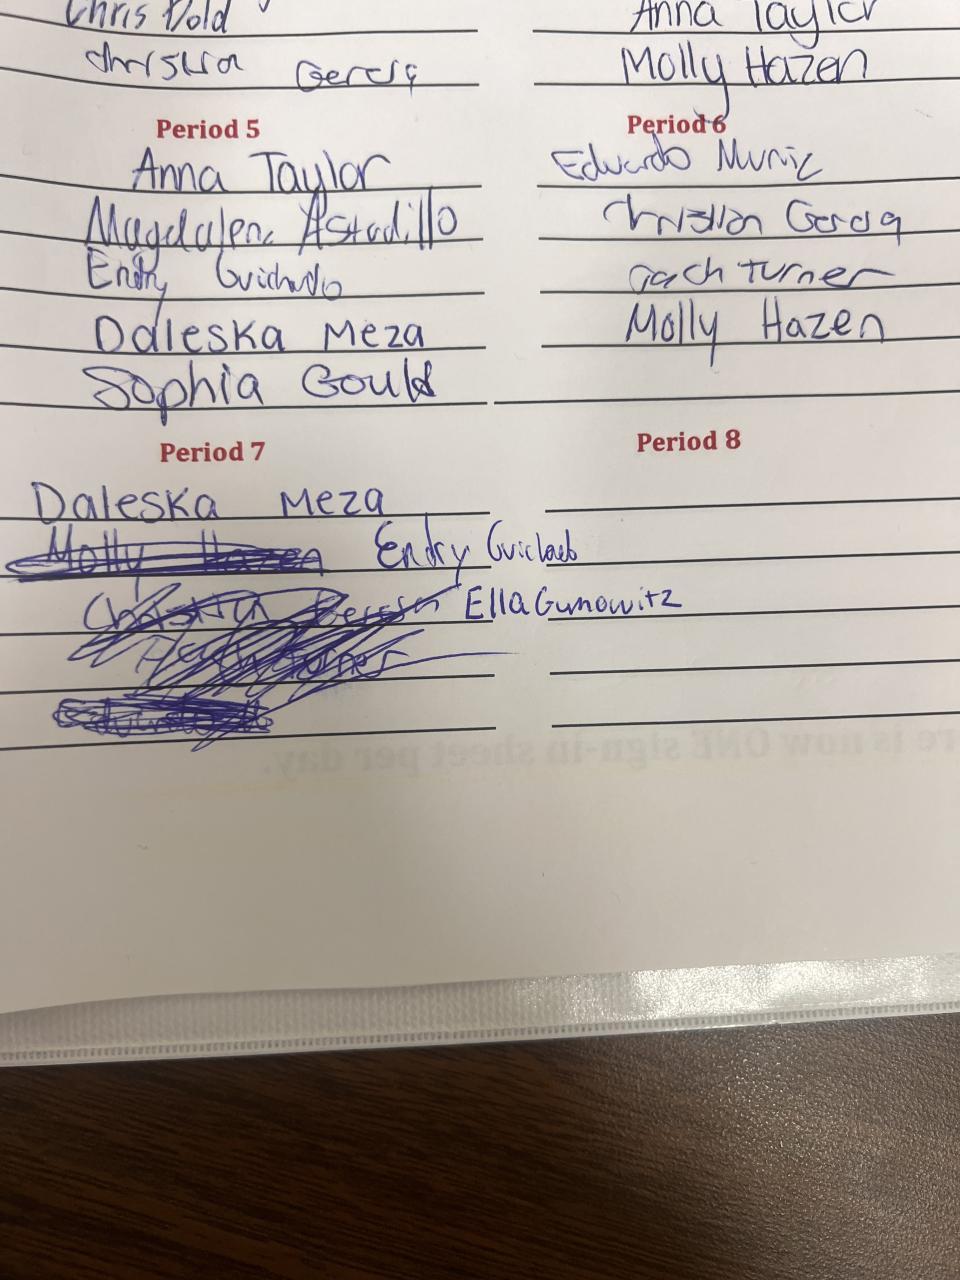 Chris Dold
Anna Taylor
Christian Gercia
Molly Hazen
Period 5
Anna Taylor
Magdalena Astudillo
Endry Guichardo
Daleska Meza
Sophia Gould
Period 6
Eduardo Muniz
Christian Gercia
Zach Turner
Molly Hazen
Period 7
Daleska Meza
Molly Hazen Endry
Ella Gunowitz
Turner
Period 8
ere is now ONE sign-in sheet per day.